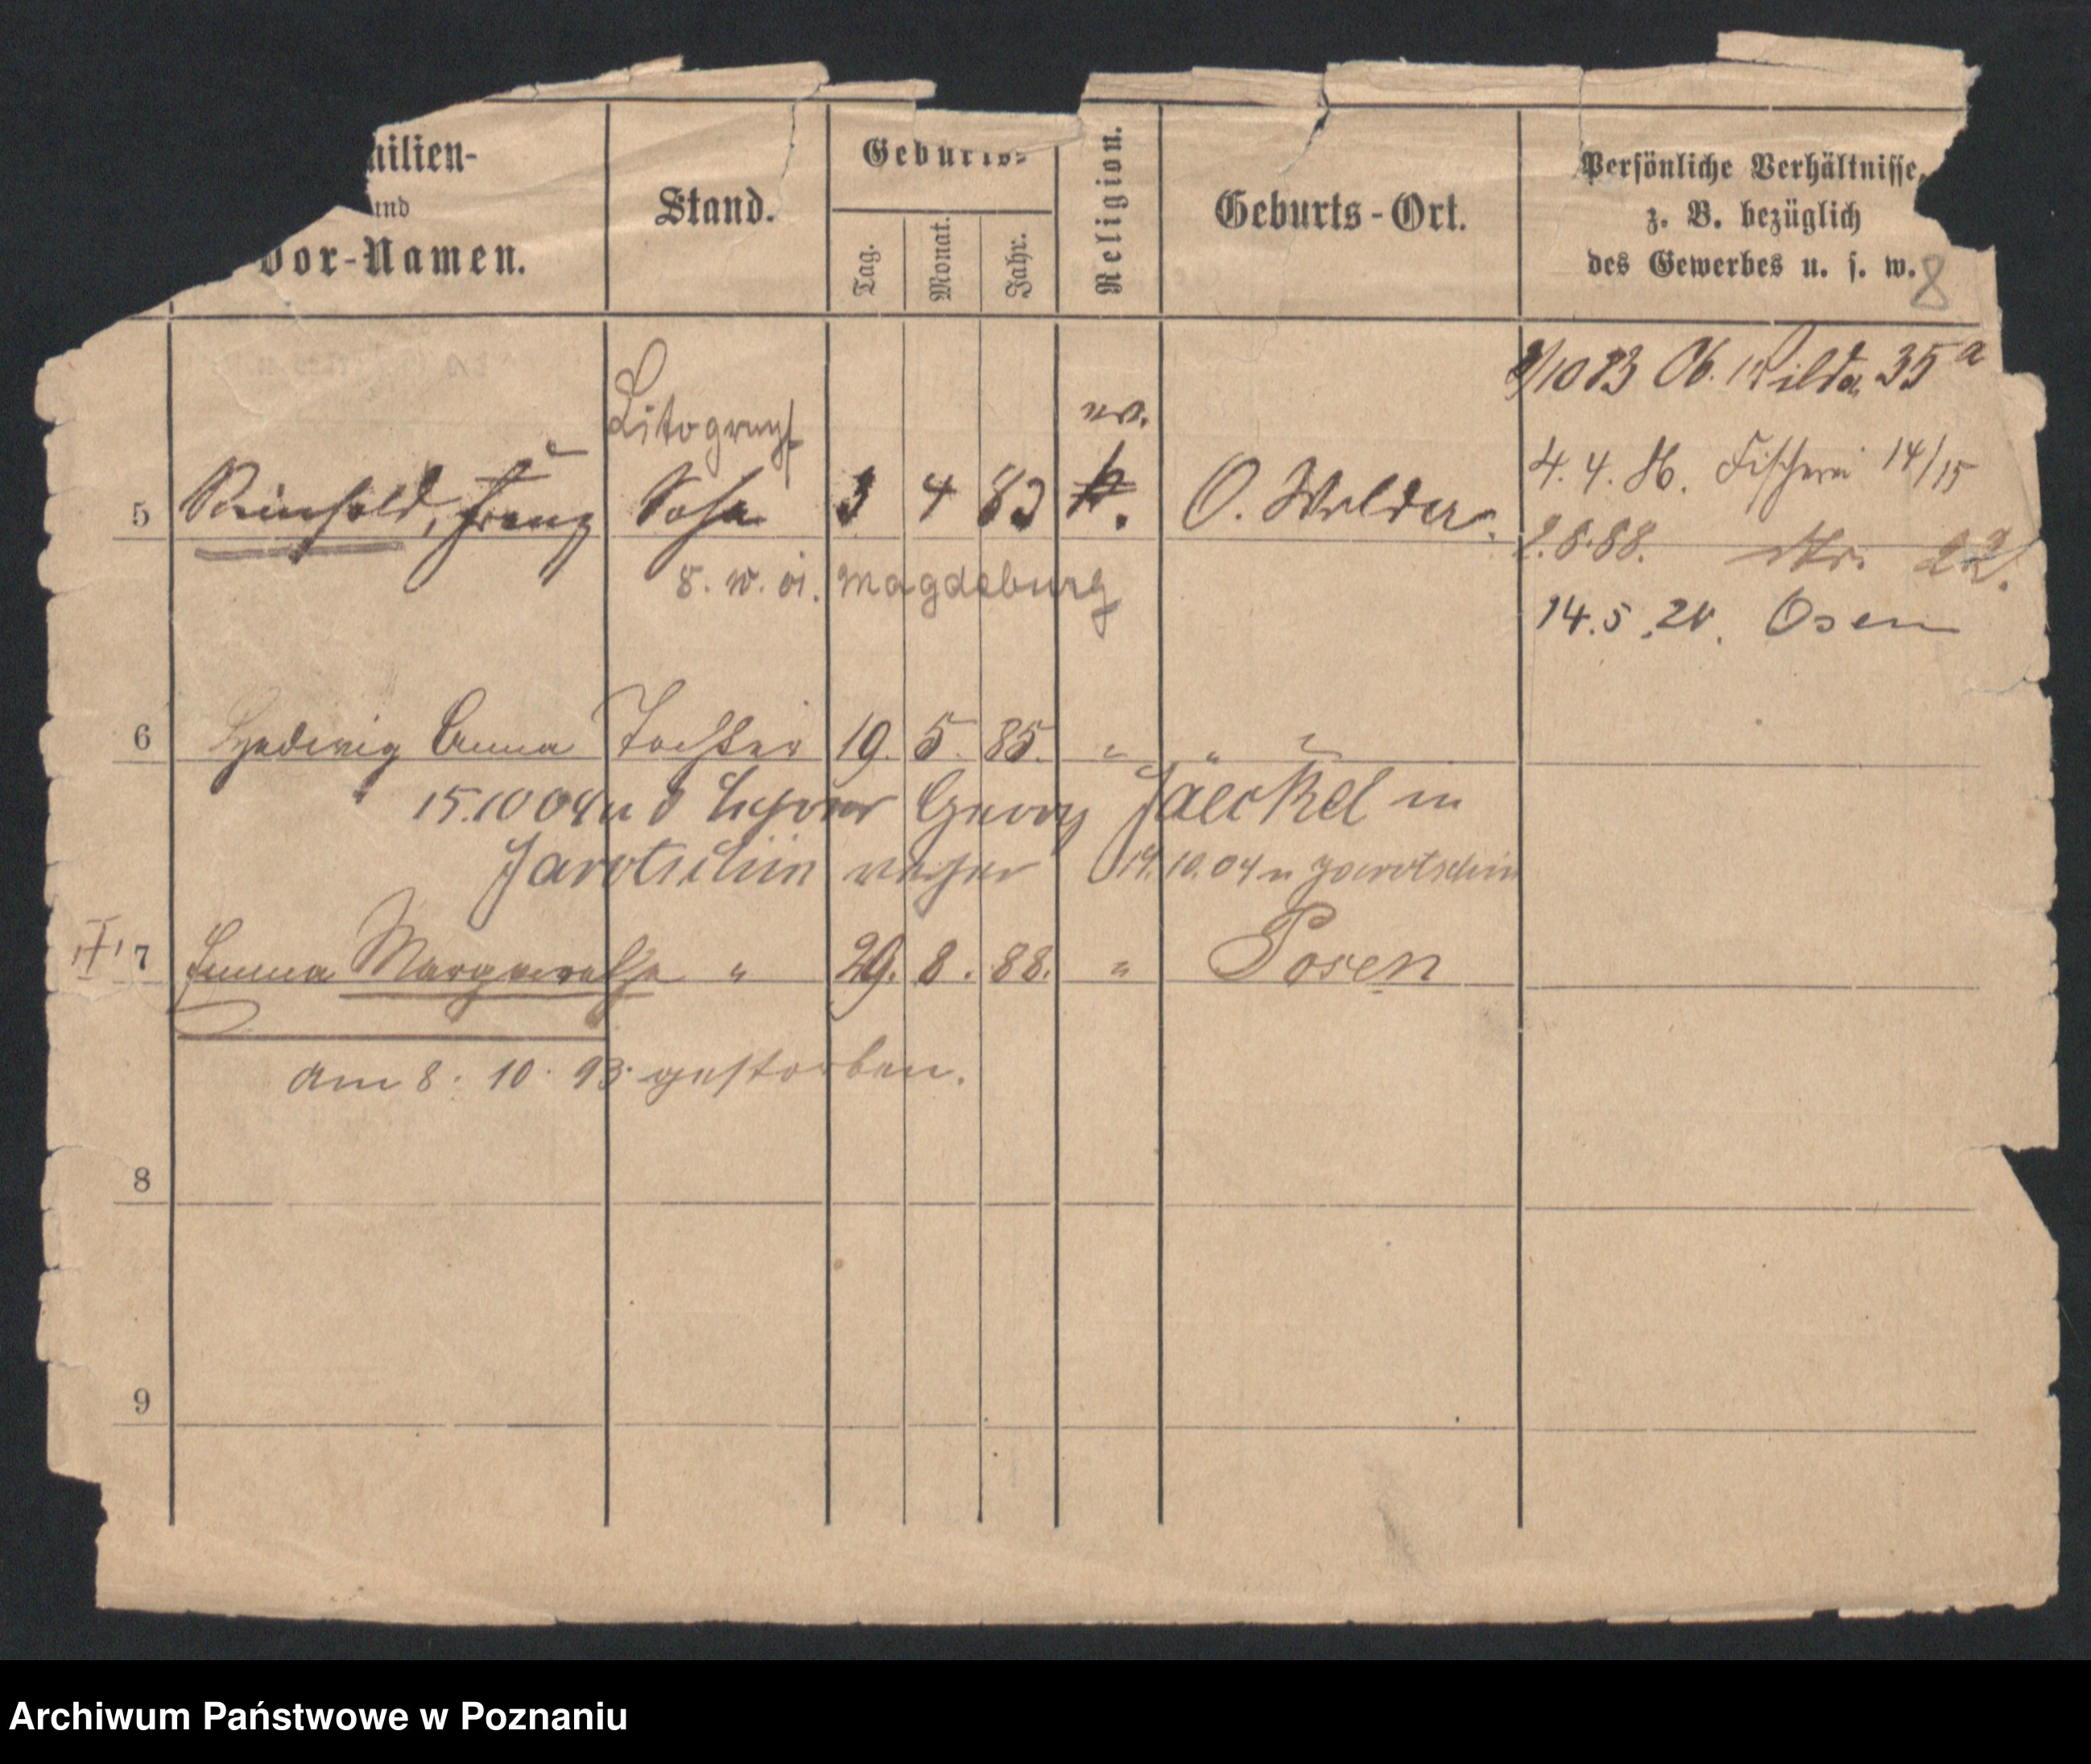 milien-
und
Vor-Namen.
Stand.
Geburts-
Tag.
Monat.
Jahr.
Religion.
Geburts-Ort.
Persönliche Verhältnisse,
z. B. bezüglich
des Gewerbes u. s. w.
8
/10 83 Ob. Wilda 35a
Litograph
ev.
4. 4. 86. Fischerei 14/15
5 Reinhold, Franz Sohn 3 4 83 k. O. Wilda
2.8.88. 22.
8. w. Magdeburg
14.5.20.
6 Hedwig Anna Tochter 19. 5. 85. " "
15.10 04 Georg Jaeckel in
Jarotschin 14.10.04 n Jarotschin
7 Emma Margarethe " 29. 8. 88. " Posen
am 8. 10. 93. gestorben.
8
9
Archiwum Państwowe w Poznaniu